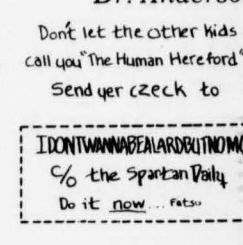 Don't let the other kids
call you "The Human Hereford"
Send yer czeck to
IDONTWANNABEALARDBUTNOMO
C/o the Spartan Daily
Do it now... Fatso